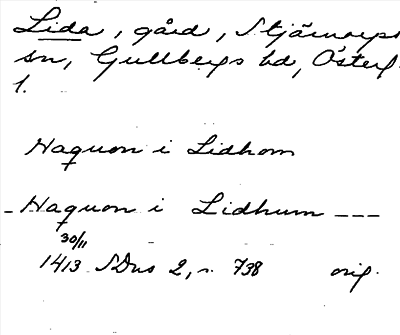 Lida, gård, Stjärnorps
sn, Gullbergs hd, Österg.
1.
Haquon i Lidhom
- Haquon i Lidhum ---
30/11
1413 SDns 2, n. 738 orig.